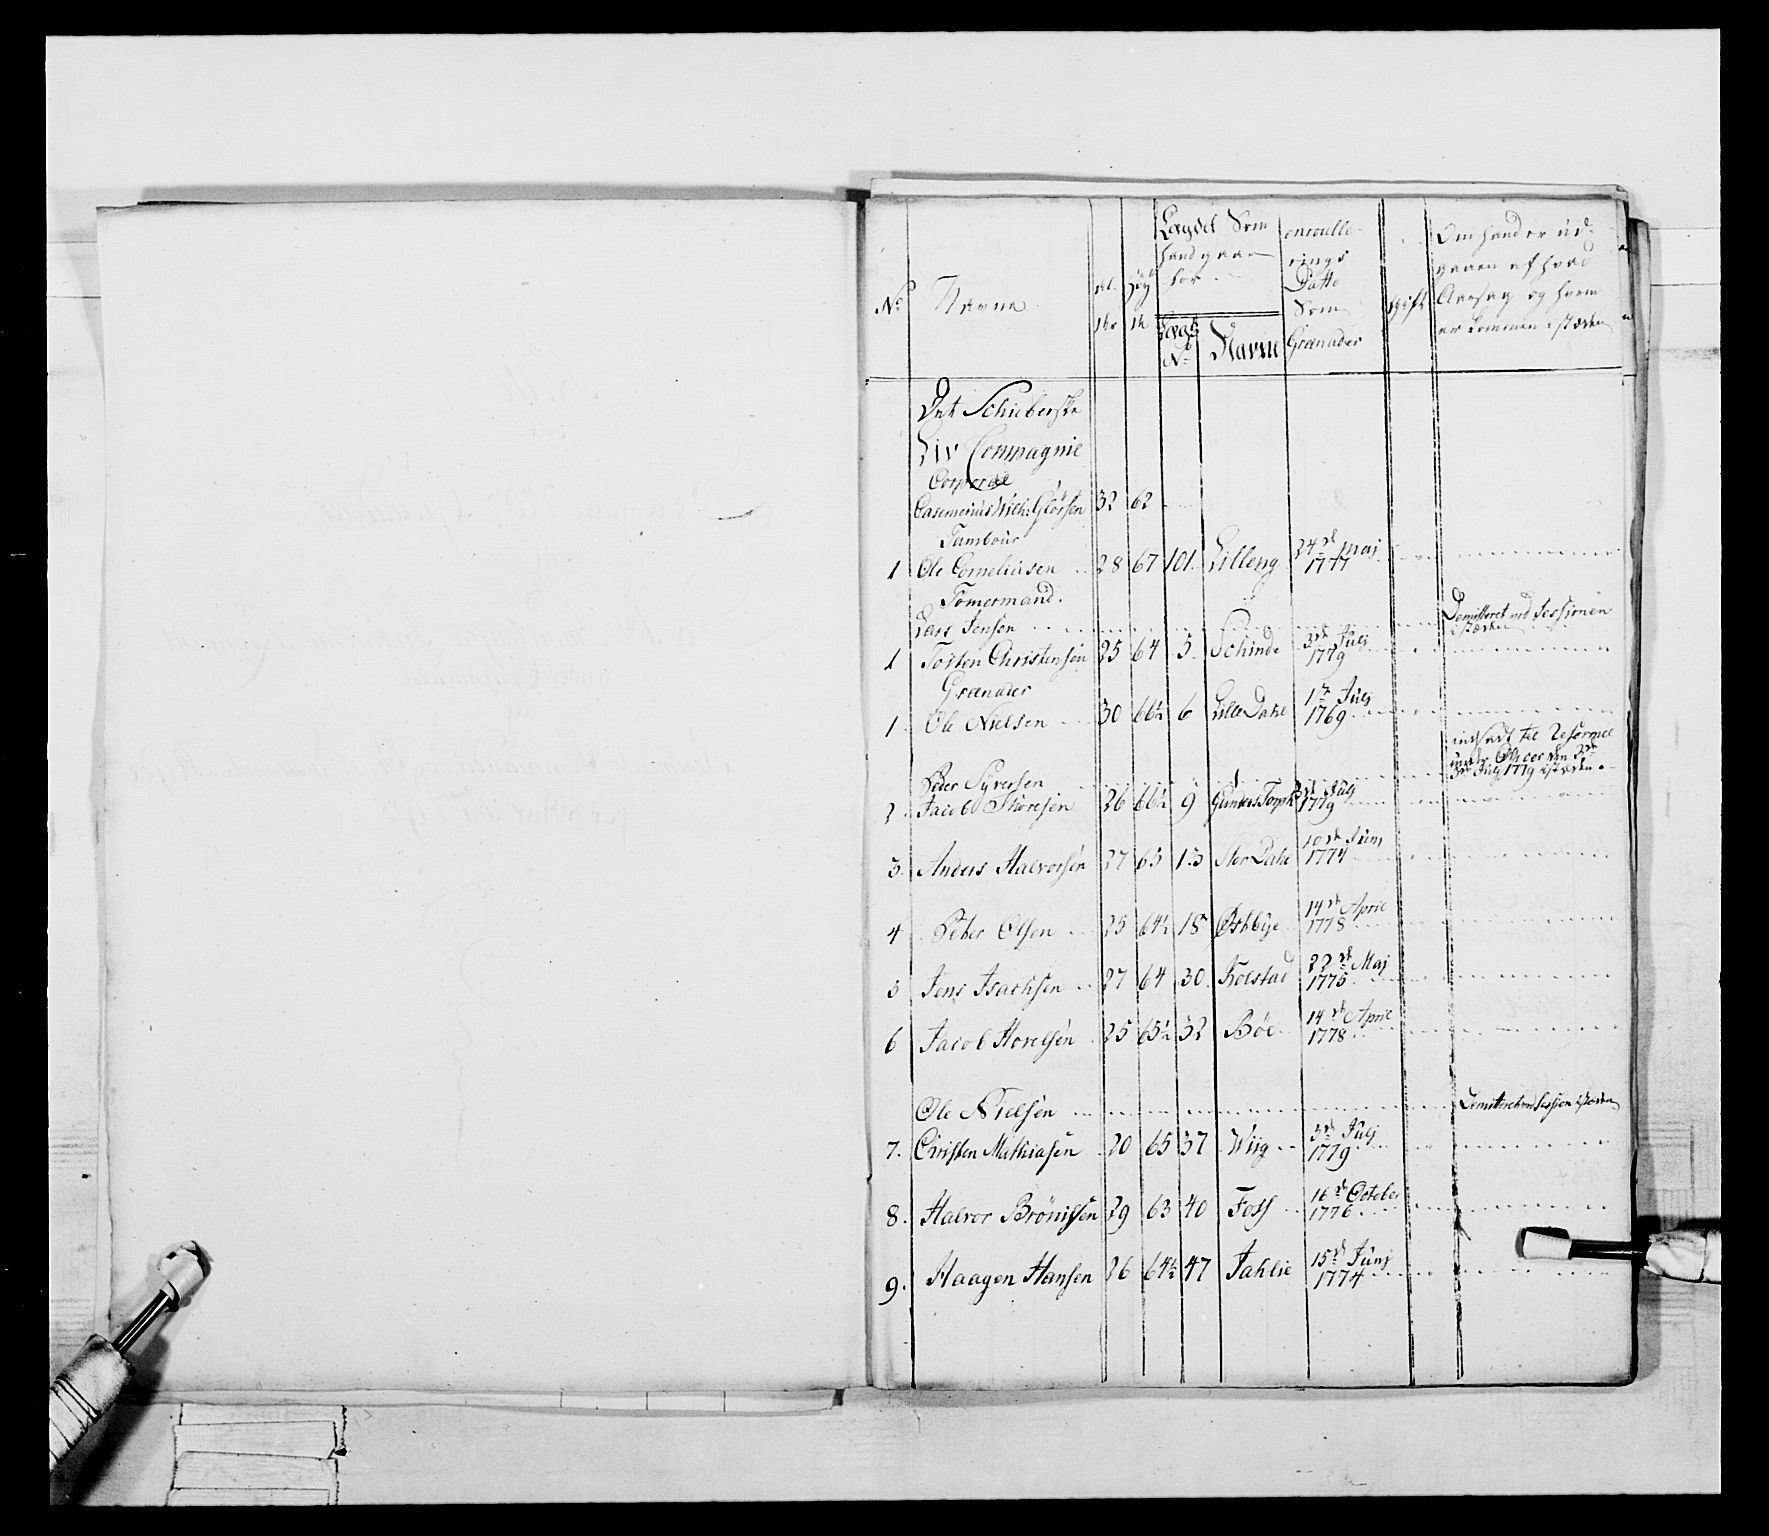 No
Navne
al-
der
Høy
de
Lægdet Som
hand gaar
for
Lægds
No
Navne
enroulle-
rings
Datto
Som
Granader
gift
Om hand er ud-
gaaen af hvad
Aarsag og hvem
er kommen i stæden
Det Schieberske
Liv Compagnie
Corporal
Casemerius Glörsen 32 62
Tambour
1 Ole Corneliusen 28 67 101 Lilleng 24de Maj 1777
Tömermand.
Lars Jensen Demitteret ved Sessionen i stæden
1 Tosten Christensen 25 64 5 Schinde 3de Julj 1779
Granader
1. Ole Nielsen 30 66½ 6 Lille Dahl 1te Julj 1769
Peder Syversen indsadt til Reserven under Officer den 3de Julj 1779 i stæden
2. Jacob Thoresen 26 66½ 9 3de Julj 1779
3. Anders Halvorsen 27 65 13 Stor Dahl 10de Junj 1774
4 Peder Olsen 25 64½ 18 Østbye 14de April 1778
5 Jens Isachsen 27 64 30 Kolstad 22de Maj 1775
6 Jacob Thorelsen 25 65½ 32 Böe 14de April 1778
Ole Nielsen Demitteret Session i stæden
7. Christen Mathiasen 20 65 37 Wiig 3de Julj 1779
8. Halvor Brönilsen 29 63 40 Foss 16de October 1776
9. Haagen Hansen 26 64½ 47 Jahlie 15de Junj 1774